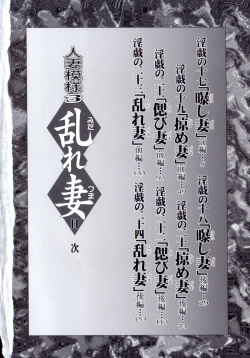 淫戯の十七「曝し妻」前編…
淫戯の十八「曝し妻」後編…29
淫戯の十九「掠め妻」前編…
淫戯の二十「掠め妻」後編…
淫戯の二十一「偲び妻」前編…
淫戯の二十二「偲び妻」後編…113
淫戯の二十三「乱れ妻」前編…133
淫戯の二十四「乱れ妻」後編…153
人妻模様3
乱れ妻
みだ
つま
目次